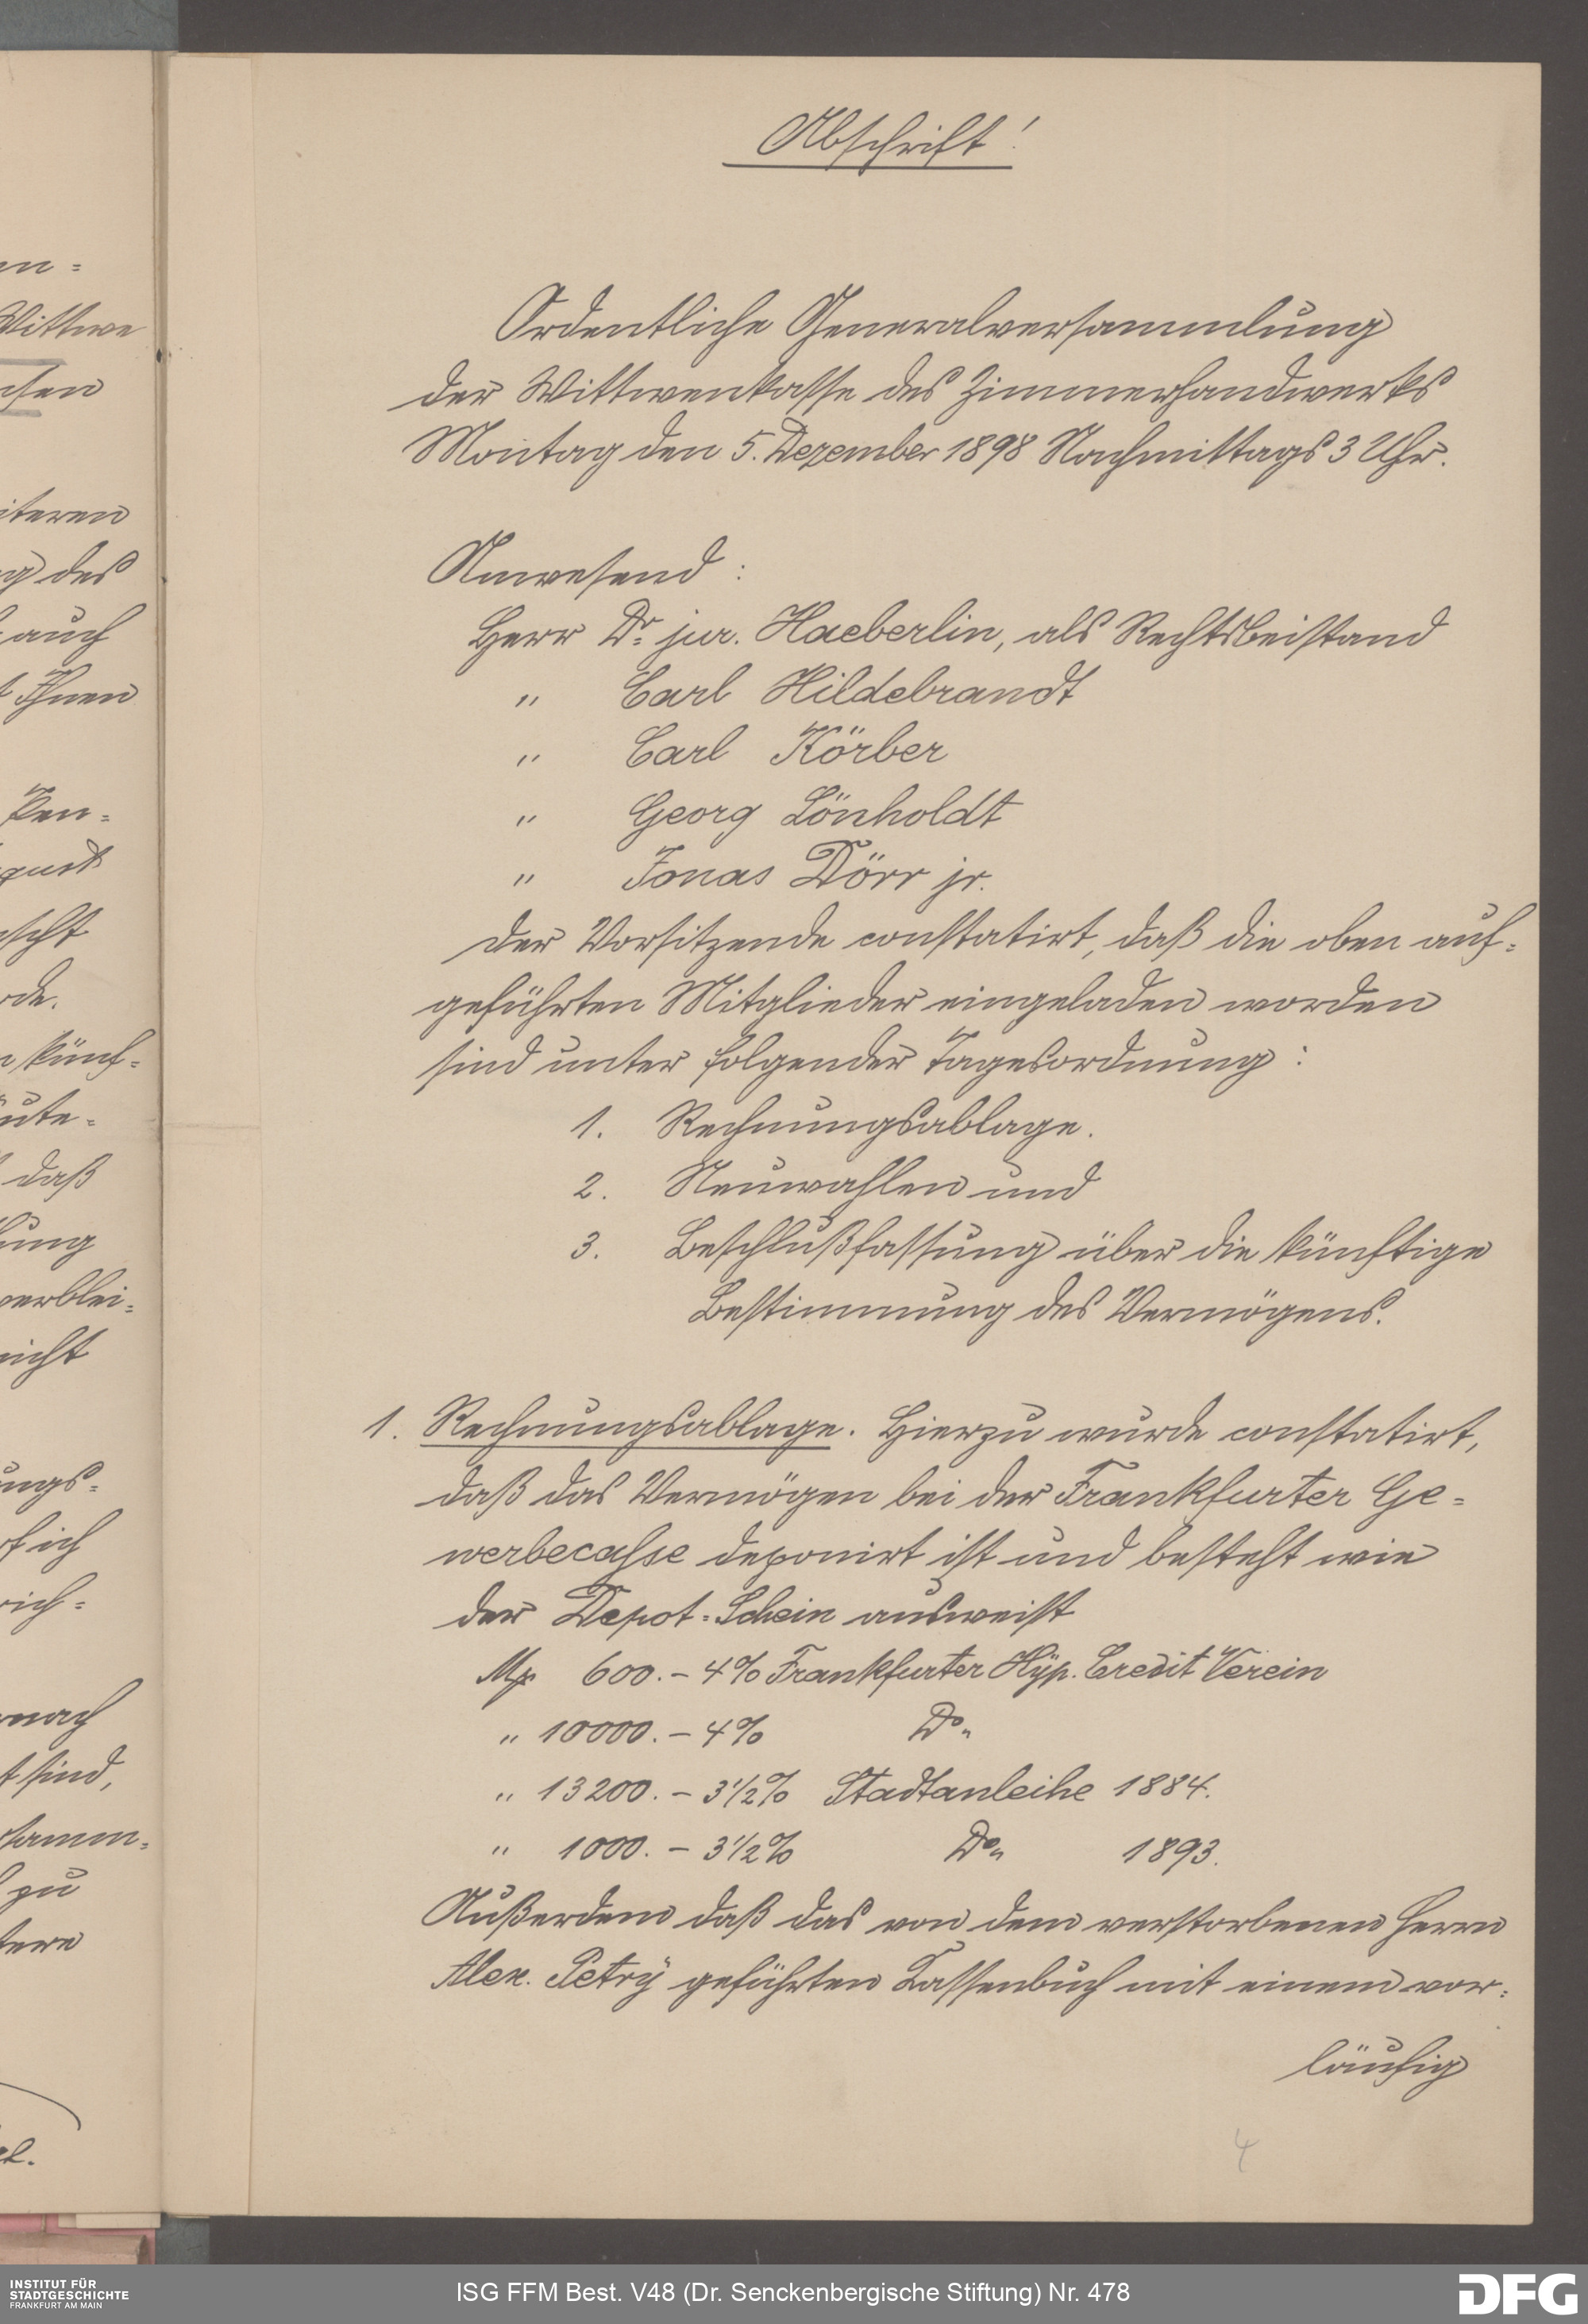 Abschrift!
Ordentliche Generalversammlung
der Wittwenkasse des Zimmerhandwerks
Montag den 5. Dezember 1898 Nachmittags 3 Uhr.
Anwesend :
Herr Dr. jur. Haeberlin, als Rechtsbeistand
" Carl Hildebrandt
" Carl Körber
" Georg Lönholdt
" Jonas Dörr jr.
Der Vorsitzende constatirt, daß die oben auf=
geführten Mitglieder eingeladen worden
sind unter folgender Tagesordnung :
1. Rechnungsablage.
2. Neuwahlen und
3. Beschlußfassung über die künftige
Bestimmung des Vermögens.
1. Rechnungsablage. Hierzu wurde constatirt,
daß das Vermögen bei der Frankfurter Ge=
werbecasse deponirt ist und besteht wie
der Depot=Schein ausweist
M 600.– 4% Frankfurter Hyp. Credit Verein
" 10000.– 4% Do "
" 13200.– 3½% Stadtanleihe 1884.
" 1000.– 3½% Do " 1893.
Außerdem daß das von dem verstorbenen Herrn
Alex. Petry geführten Kassenbuch mit einem vor=
läufig
4
en=
Wittwe
iteren
g des
auch
Ihnen
Pen=
scht
rde.
künf=
ute=
daß
ung
verblei=
nicht
ungs=
f ich
rich=
nach
t sind,
samm=
zu
tere
INSTITUT FÜR
STADTGESCHICHTE
FRANKFURT AM MAIN
ISG FFM Best. V48 (Dr. Senckenbergische Stiftung) Nr. 478
DFG